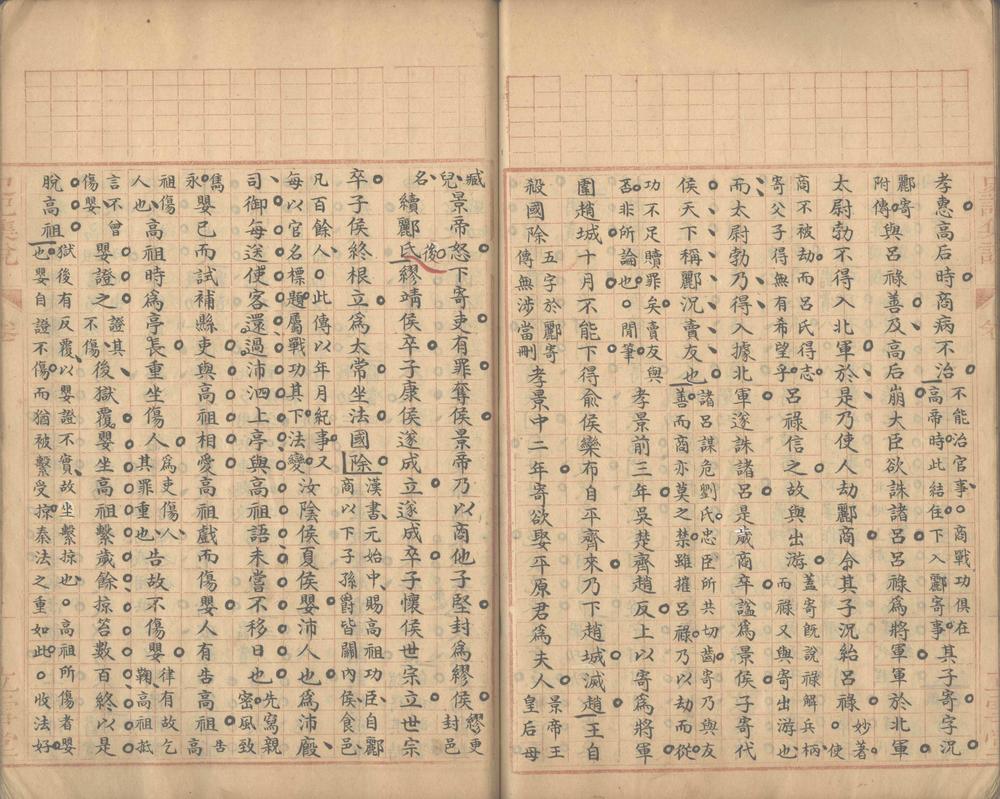 孝惠高后時商病不治不能治官事○商戰功俱在高帝時此結住下入酈寄事其子寄字況
酈寄附傳與呂祿善及高后崩大臣欲誅諸呂呂祿為將軍軍於北軍
太尉勃不得入北軍於是乃使人劫酈商令其子況紿呂祿妙著使
商不被劫而呂氏得志寄父子得無有希望乎呂祿信之故與出游蓋寄既說祿解兵柄而祿又與寄出游也
而太尉勃乃得入據北軍遂誅諸呂是歲商卒諡為景侯子寄代
侯天下稱酈況賣友也諸呂謀危劉氏忠臣所共切齒寄乃與友善而商亦莫之禁雖摧呂祿乃以劫而從
功不足贖罪矣賣友與否非所論也○閒筆孝景前三年吳楚齊趙反上以寄為將軍
圍趙城十月不能下得俞侯欒布自平齊來乃下趙城滅趙王自
殺國除五字於酈寄傳無涉當刪孝景中二年寄欲娶平原君為夫人景帝王皇后母
臧兒名景帝怒下寄吏有罪奪侯景帝乃以商他子堅封為繆侯繆更封邑
續酈氏後繆靖侯卒子康侯遂成立遂成卒子懷侯世宗立世宗
卒子侯終根立為太常坐法國除漢書元始中賜高祖功臣自酈商以下子孫爵皆關內侯食邑
凡百餘人○此傳以年月紀事又每以官名標題屬戰功其下法變汝陰侯夏侯嬰沛人也為沛廄
司御每送使客還過沛泗上亭與高祖語未嘗不移日也先寫親密風致
雋永嬰已而試補縣吏與高祖相愛高祖戲而傷嬰人有告高祖告高
祖傷人也高祖時為亭長重坐傷人為吏傷人其罪重也告故不傷嬰律有故乞鞠高祖抵
言不曾傷嬰嬰證之證其不傷後獄覆嬰坐高祖繫歲餘掠笞數百終以是
脫高祖獄後有反覆以嬰證不實故坐繫掠也○高祖所傷者嬰也嬰自證不傷而猶被繫受掠秦法之重如此○收法好